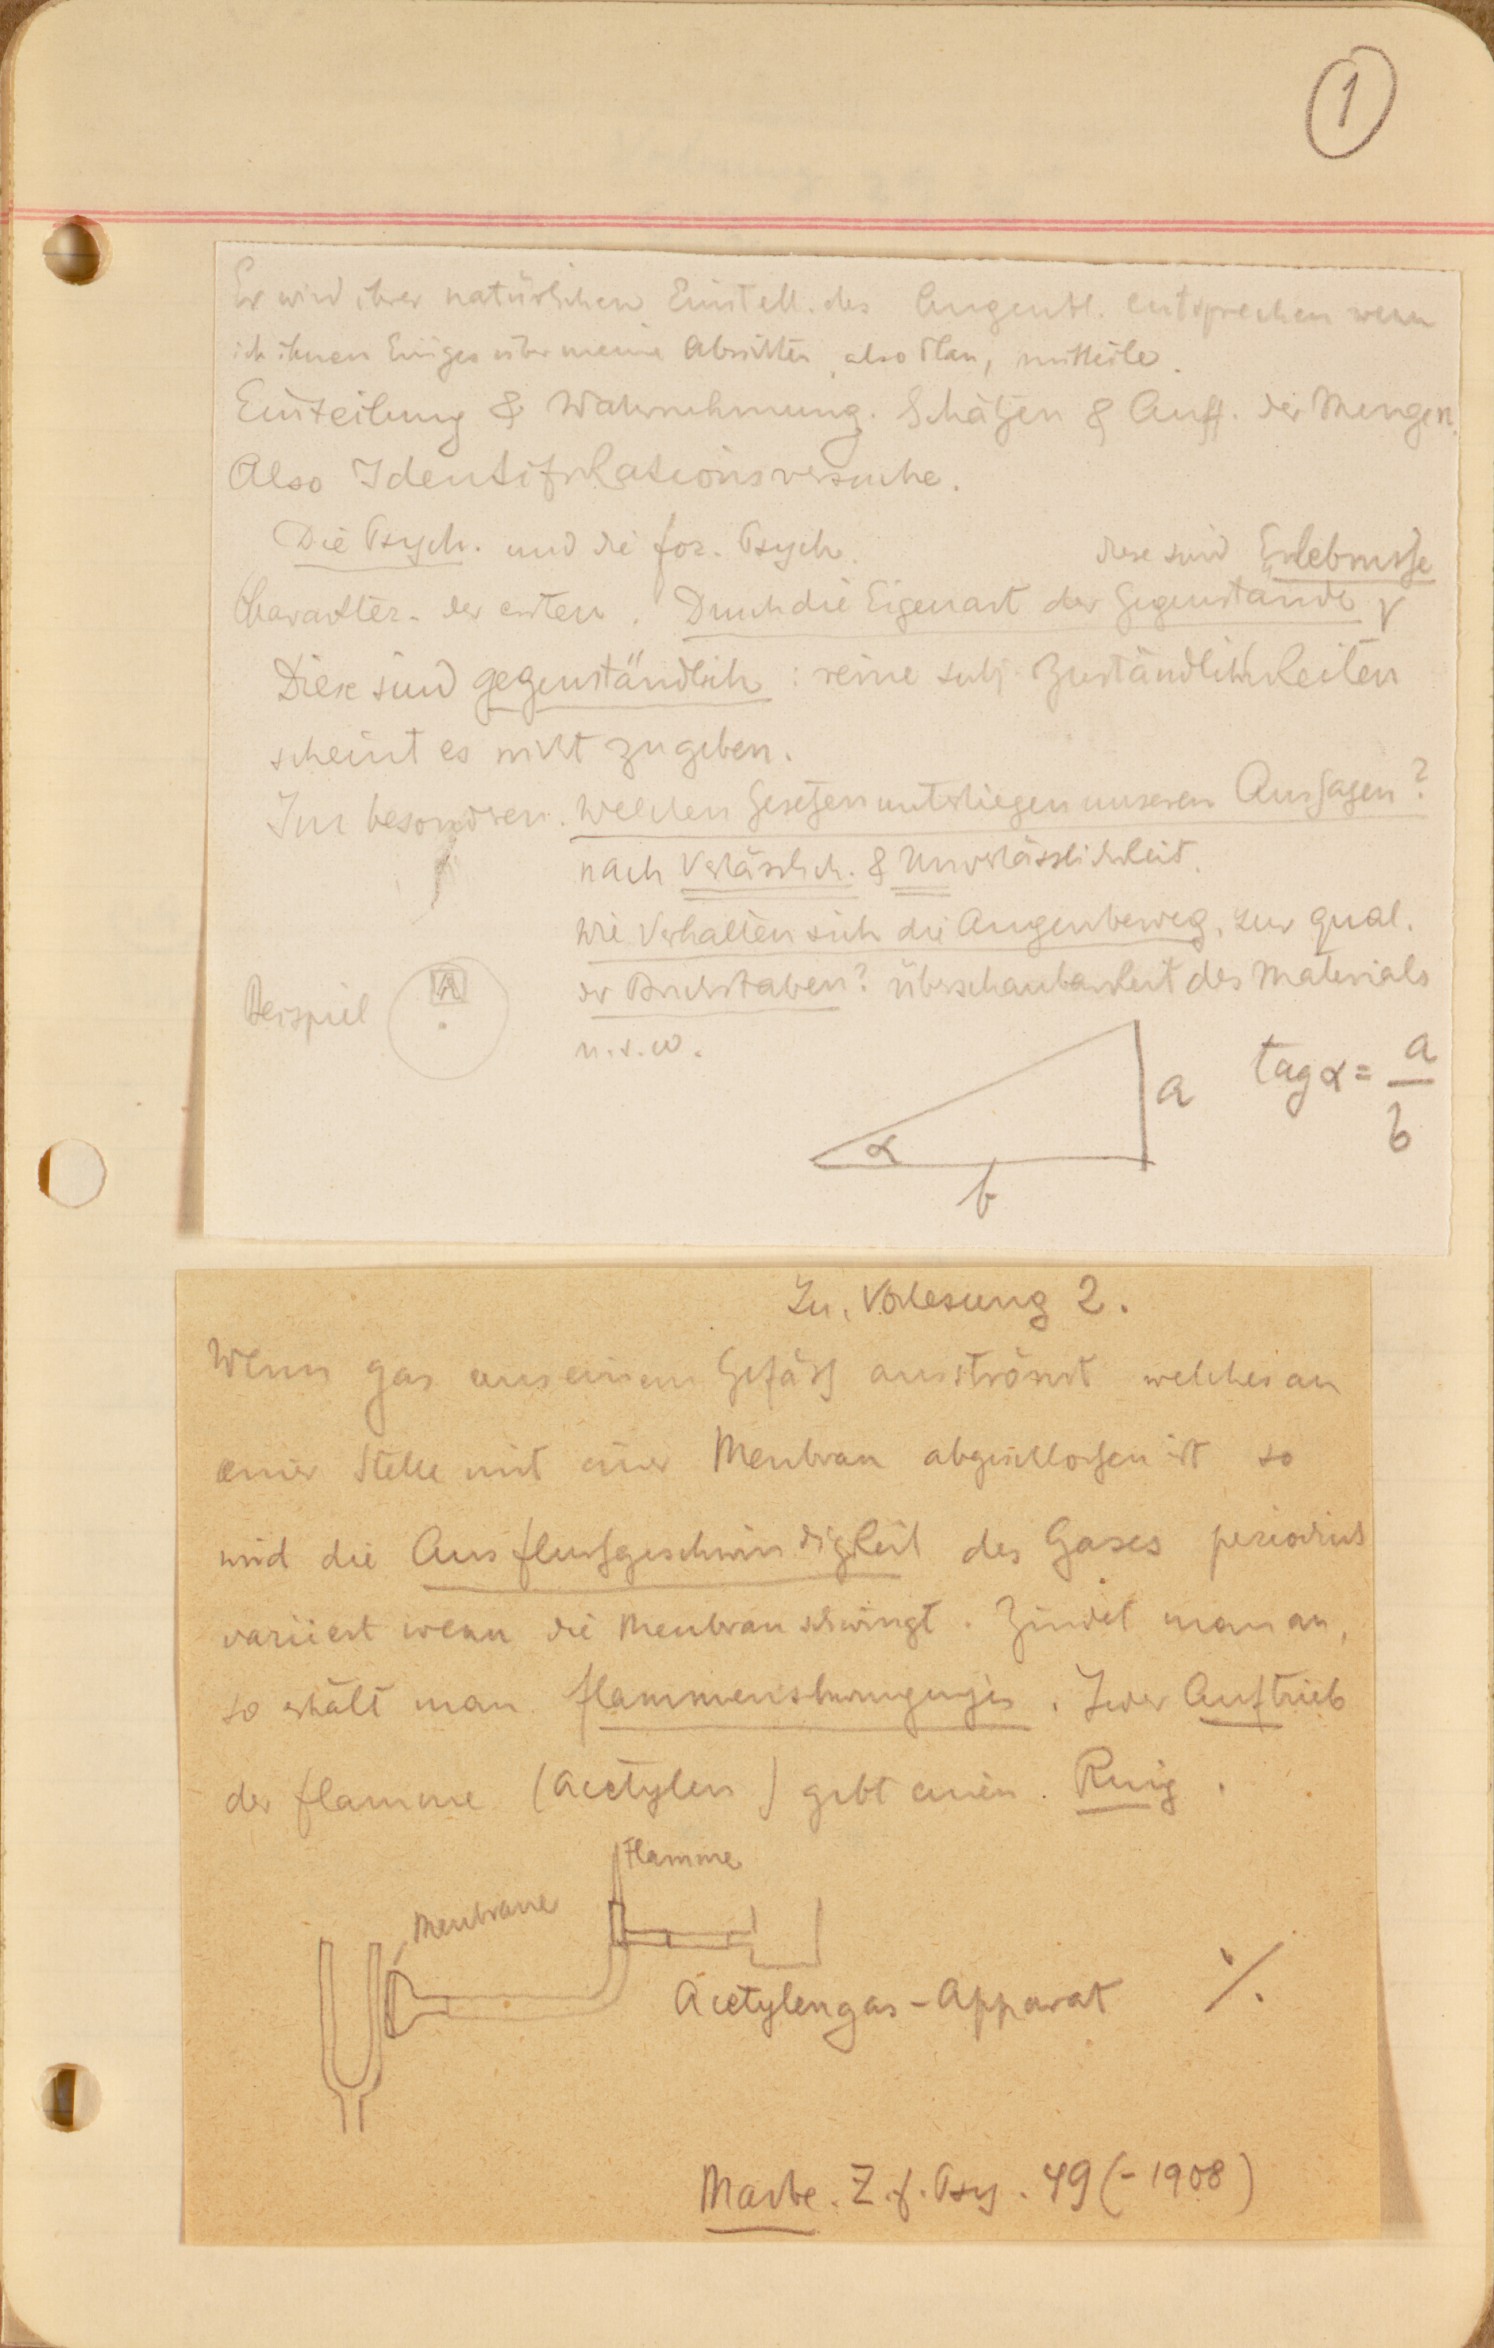 1
Er wird ihrer natürlichen Einstell. des Augenbl. entsprechen wenn
ich ihnen Einiges über meine Absichten, also Plan, mitteile.
Einteilung & Wahrnehmung. Schätzen & Auff. der Mengen.
Also Identifikationsversuche.
Die Psych. und die for. Psych.
diese sind Erlebnisse
Charakter. der ersten. Durch die Eigenart der Gegenstände
Diese sind gegenständlich : reine subj. Zuständlichkeiten
scheint es nicht zu geben.
Im besondren. Welchen Gesetzen unterliegen unseren Aussagen?
nach Verlässlich. & Unverlässlichkeit.
Wie Verhalten sich die Augenbeweg. zur qual.
der Buchstaben? Überschaubarkeit des Materials
u.s.w.
Beispiel
A
α
a
b
tag α = a
b
Zu. Vorlesung 2.
Wenn gas aus einem Gefäss ausströmt welches an
einer Stelle mit einer Menbran abgeschlossen ist so
wird die Ausflussgeschwindigkeit des Gases periodisch
variiert wenn die Menbran schwingt. Zündet man an,
so erhält man. Jeder Auftrieb
der flamme (Acetylen) gibt einen Ring.
Flamme
Menbrane
Acetylengas-Apparat
./.
Marbe. Z.f. Psy. 49 (-1908)